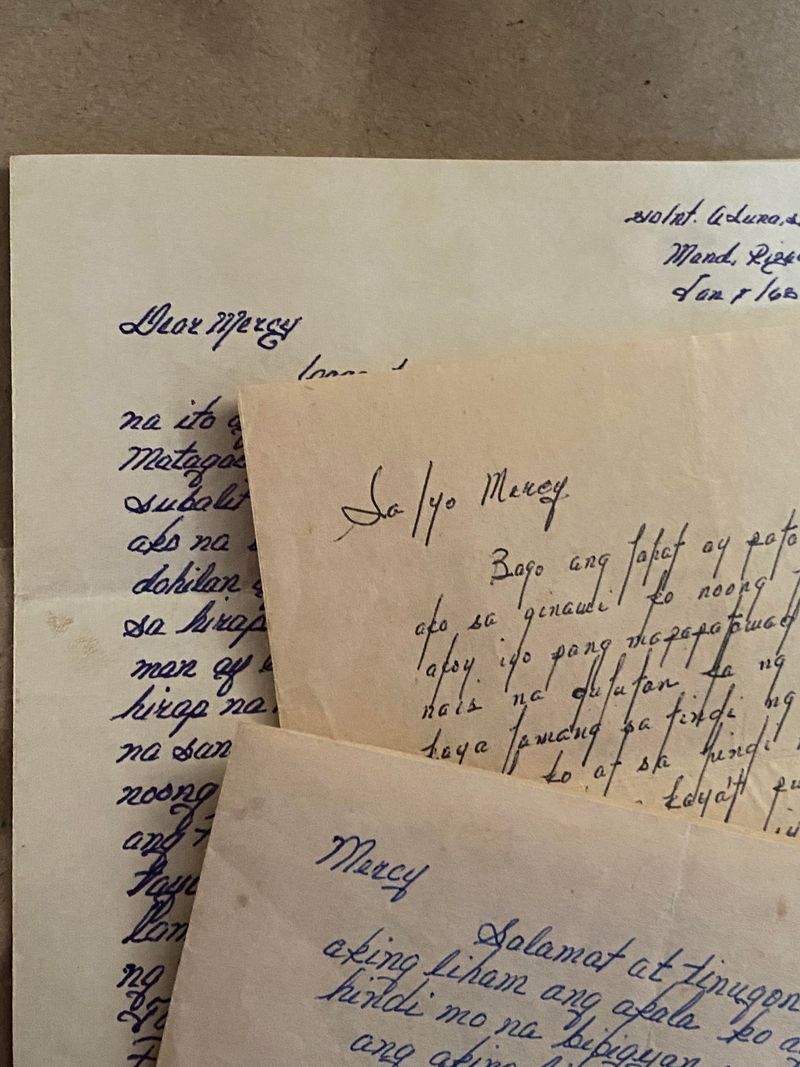 Mand, Riza
Jan 8/68
Dear Mercy
na ito
subalit
ako na
dahilan
sa hirap
man ay
hirap na
na san
noong
ang
ng
Sa Iyo Mercy
Bago ang lahat ay pata
ako sa ginawi ko noong
akoy iyo pang mapapatawad
nais na ng
kaya lamang sa tindi ng
ko at sa hindi
kaya't pu
Mercy
Salamat at tinugon
aking liham ang akala ko a
hindi mo na bibigyan
ang aking